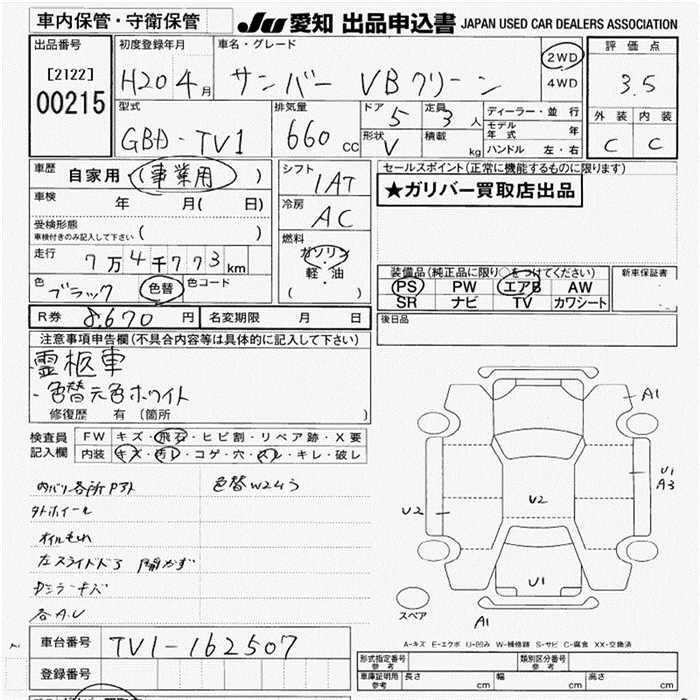 車内保管・守衛保管
JU 愛知 出品申込書 JAPAN USED CAR DEALERS ASSOCIATION
出品番号
[2122]
00215
初度登録年月
H20 4月
車名・グレード
サンバー VBクリーン
2WD
4WD
評価点
3.5
外装 内装
C C
型式
GBD-TV1
排気量
660 cc
ドア
5
定員
3人
形状
V
積載
kg
ディーラー・並行
モデル年式 年
ハンドル 左・右
車歴
自家用・(事業用 )
車検
年 月( 日)
受検形態
車検付きのみ記入して下さい ( )
走行
7万4千773km
色
ブラック
色替
色コード
シフト
1AT
冷房
AC
燃料
ガソリン
・
軽・油
( )
セールスポイント(正常に機能するものに限ります)
★ガリバー買取店出品
装備品(純正品に限り○をつけてください)
PS PW エアB AW
SR ナビ TV カワシート
新車保証書
後日品
R券 8,670円
名変期限 月 日
注意事項申告欄(不具合内容等は具体的に記入して下さい)
霊柩車
・色替元色ホワイト
修復歴 有 (箇所 )
検査員
記入欄
FW キズ・飛石・ヒビ割・リペア跡・X要
内装 キズ・汚レ・コゲ・穴・スレ・キレ・破レ
内バリ各所
色替W24ヶ
外ホイール
オイルもれ
左スライドドア 開かず
ミラーキズ
各A.U
A1
U1
A3
U2
U2
U1
A1
スペア
A-キズ E-エクボ U-凹み W-補修跡 S-サビ C-腐食 XX-交換済
車台番号
TV1-162507
登録番号
形式指定番号
参考
類別区分番号
参考
車庫証明用
参考
長さ cm 幅 cm 高さ cm